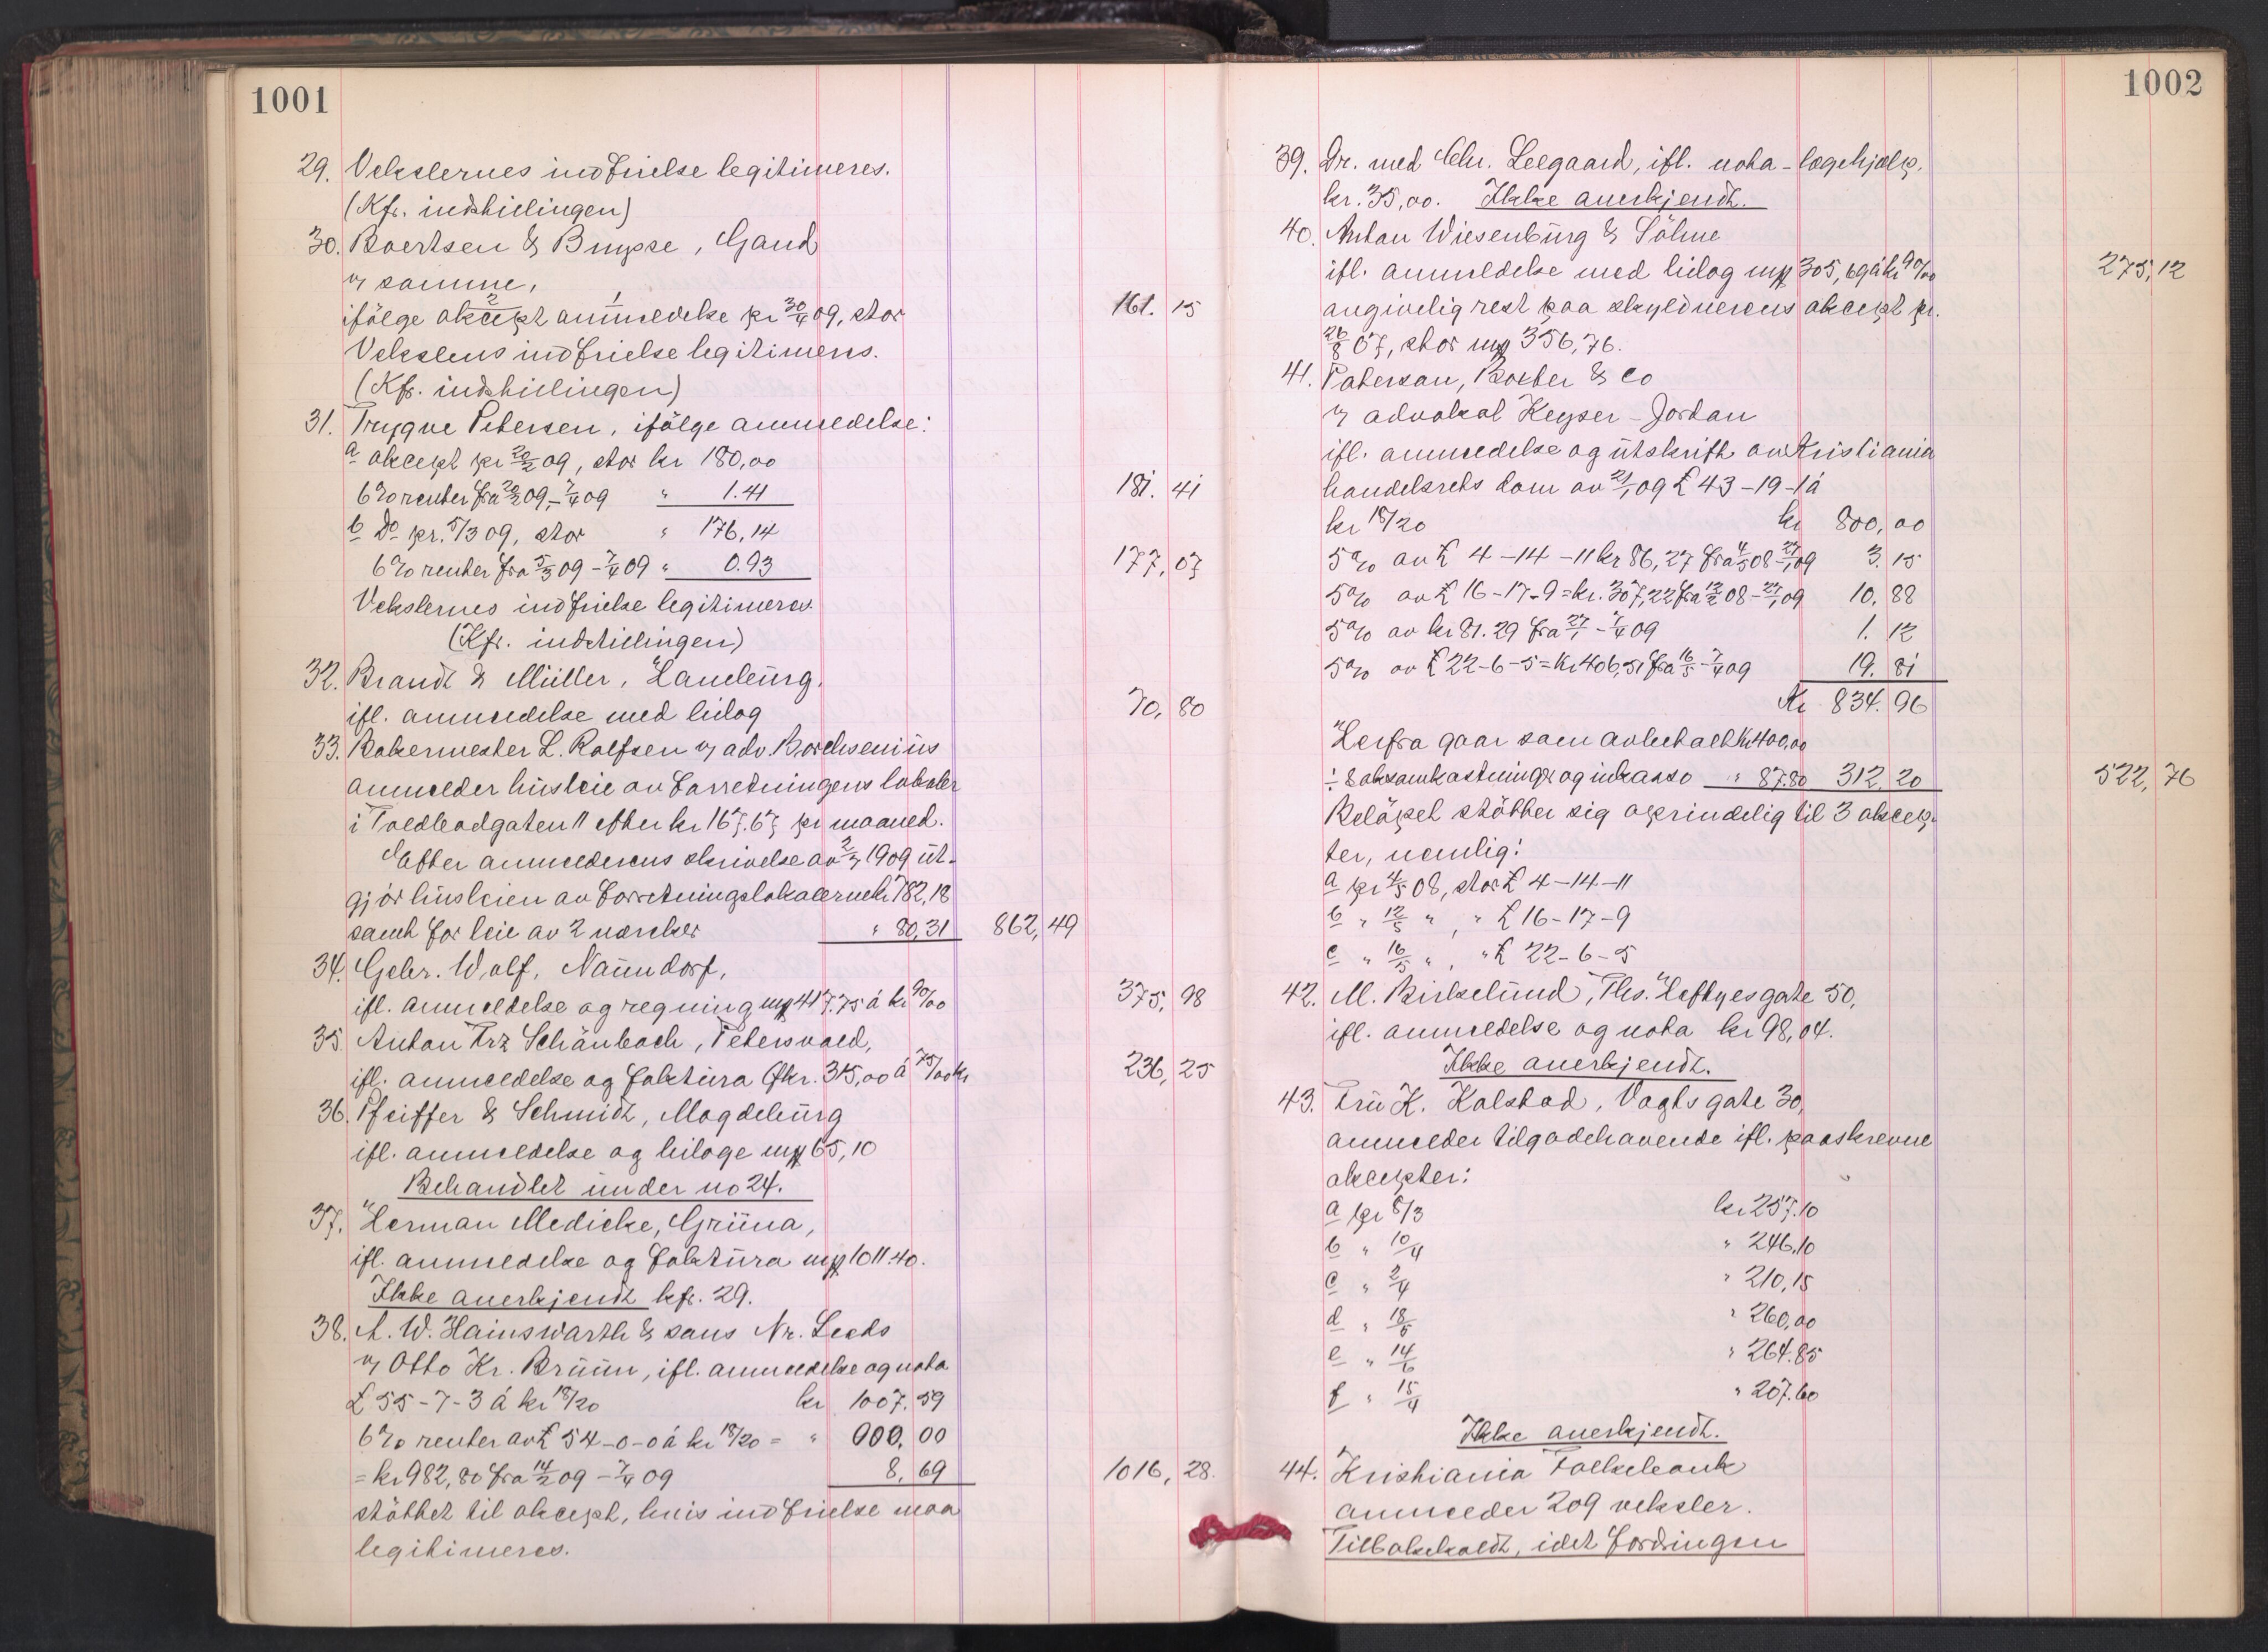 1001
29. Vekslernes indfrielse legitimeres.
(Kfr. indstillingen)
30. Baertsen & Buysse, Gand
v/ samme,
ifølge aksept anmeldelse pr 30/4 09, stor 161.15
Vekslens indfrielse legitimeres.
(Kfr. indstillingen)
31. Trygve Petersen, ifølge anmeldelse:
a aksept pr 20/2 09, stor kr 180,00
6% renter fra 20/2 09 - 7/4 09 " 1.41 181.41
b do pr. 5/3 09, stor " 176,14
6% renter fra 5/3 09 - 7/4 09 " 0.93 177,07
Vekslernes indfrielse legitimeres.
(Kfr. indstillingen)
32. Brandt & Müller, Hamburg.
ifl. anmeldelse med bilag 70,80
33. Bakermester L. Rolfsen v/ adv. Borchsenius
anmelder husleie av forretningens lokaler
i Toldbodgaten 11 efter kr 167.67 pr maaned.
Efter anmelderens skrivelse av 2/7 1909 ut-
gjør husleien av forretningslokalerne kr 782,18
samt for leie av 2 værelser " 80,31 862,49
34. Gebr. Wolf, Naundorf,
ifl. anmeldelse og regning mk 417.75 á kr 90/00 375,98
35. Anton Frz Schönbach, Petersvald,
ifl. anmeldelse og faktura Økr. 315,00 á 75/00 kr 236,25
36. Pfeiffer & Schmidt, Magdeburg
ifl. anmeldelse og bilage mk 65,10
Behandlet under no 24.
37. Herman Medicke, Grüna,
ifl. anmeldelse og faktura mk 1011.40.
Ikke anerkjendt kfr. 29.
38. A. W. Hainswarth & sons Nr. Leeds
v/ Otto Kr. Bruun, ifl. anmeldelse og nota
£ 55-7-3 á kr 18/20 kr 1007.59
6% renter av £ 54-0-0 á kr 18/20 = " 000,00
= kr 982,80 fra 14/2 09 - 7/4 09 8,69 1016,28.
støttet til aksept, hvis indfrielse maa
legitimeres.
1002
39. Dr. med Chr. Leegaard, ifl. nota - lægehjælp,
kr. 35,00. Ikke anerkjendt.
40. Anton Wiesenburg & Söhne
ifl. anmeldelse med bilag mk 305,69 á kr 90/00 275,12
angivelig rest paa skyldnerens aksept pr.
26/8 07, stor mk 356,76.
41. Paterson, Boster & Co
v/ advokat Keyser-Jordan
ifl. anmeldelse og utskrift av Kristiania
handelsrets dom av 21/1 09 £ 43-19-1 á
kr 18/20 kr 800,00
5% av £ 4-14-11 kr 86,27 fra 4/5 08 - 27/1 09 3.15
5% av £ 16-17-9 = kr. 307,22 fra 12/2 08 - 27/1 09 10,88
5% av kr 81.29 fra 27/1 - 7/4 09 1.12
5% av £ 22-6-5 = kr 406,51 fra 16/5 - 7/4 09 19.81
Kr 834.96
Herfra gaar som avbetalt kr 400,00
÷ saksomkostninger og inkasso " 87.80 312,20 522,76
Beløpet støtter sig oprindelig til 3 aksep-
ter, nemlig:
a pr 4/5 08, stor £ 4-14-11
b " 12/5 ", " £ 16-17-9
c " 16/5 ", " £ 22-6-5
42. M. Birkelund, Ths. Heftyesgate 50,
ifl. anmeldelse og nota kr 98,04.
Ikke anerkjendt.
43. Fru K. Kalstad, Vogtsgate 30,
anmelder tilgodehavende ifl. paaskrevne
aksepter:
a pr 8/3 kr 257.10
b " 10/4 " 246,10
c " 2/4 " 210,15
d " 18/5 " 260,00
e " 14/6 " 264.85
f " 15/4 " 207.60
Ikke anerkjendt.
44. Kristiania Folkebank
anmelder 209 veksler.
Tilbakekaldt, idet fordringen